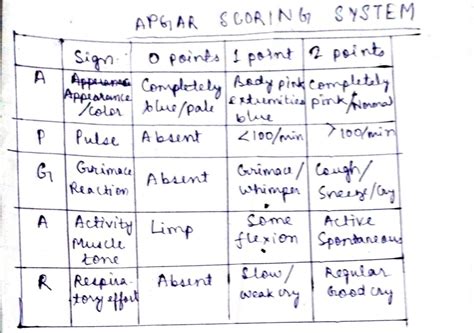 APGAR SCORING SYSTEM
Sign 0 points 1 point 2 points
A Appearance Completely Body pink Completely
Appearance blue/pale extremities pink/Normal
/color blue
P Pulse Absent <100/min >100/min
G Grimace Absent Grimace/ Cough/
Reaction Whimper Sneeze/Cry
A Activity Limp Some Active
Muscle flexion Spontaneous
tone
R Respira- Absent Slow/ Regular
tory effort weak cry Good cry